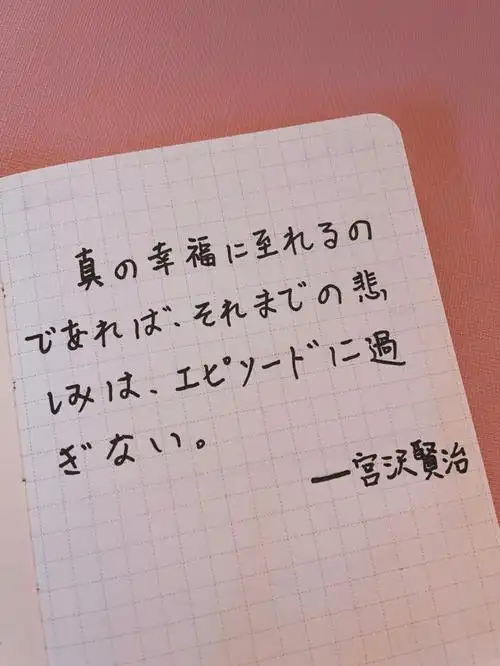 真の幸福に至れるの
であれば、それまでの悲
しみは、エピソードに過
ぎない。
一宮沢賢治